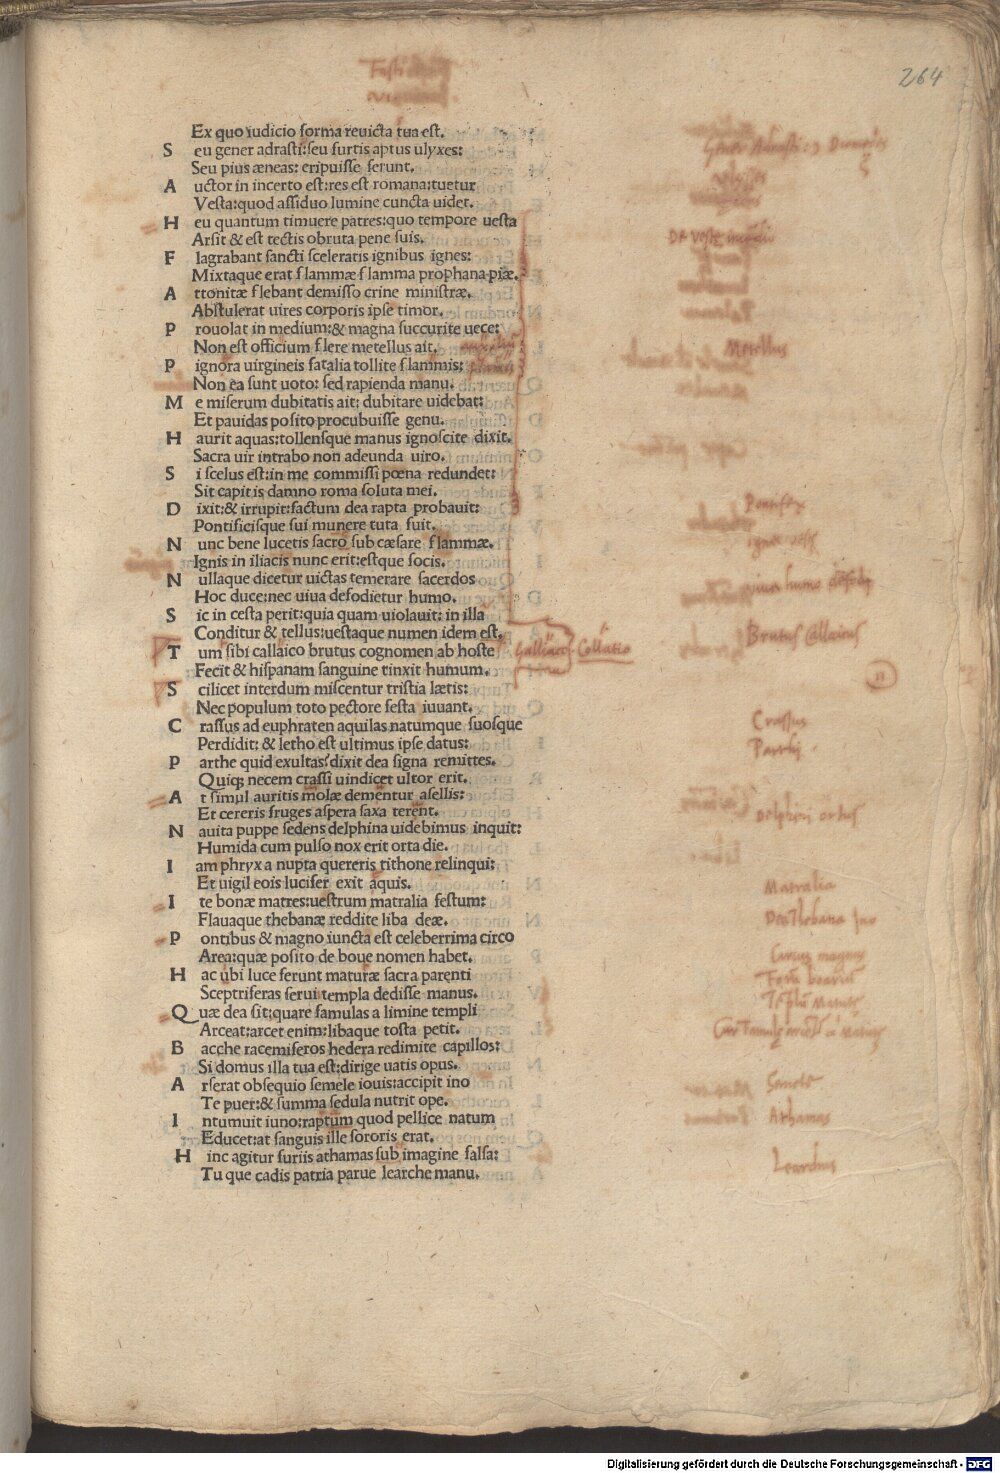 264
Ex quo iudicio forma reuicta tua est.
S eu gener adrasti:seu furtis aptus ulyxes:
Seu pius æneas: eripuisse ferunt.
A uctor in incerto est:res est romana:tuetur
Vesta:quod assiduo lumine cuncta uidet.
H eu quantum timuere patres:quo tempore uesta
Arsit & est tectis obruta pene suis.
F lagrabant sancti sceleratis ignibus ignes:
Mixtaque erat flammæ flamma prophana piæ.
A ttonitæ flebant demisso crine ministræ.
Abstulerat uires corporis ipse timor.
P rouolat in medium:& magna succurite uoce:
Non est officium flere metellus ait.
P ignora uirgineis fatalia tollite flammis:
Non ea sunt uoto: sed rapienda manu.
M e miserum dubitatis ait: dubitare uidebat:
Et pauidas posito procubuisse genu.
H aurit aquas:tollensque manus ignoscite dixit.
Sacra uir intrabo non adeunda uiro.
S i scelus est:in me commissi pœna redundet:
Sit capitis damno roma soluta mei.
D ixit:& irrupit:factum dea rapta probauit:
Pontificisque sui munere tuta fuit.
N unc bene lucetis sacro sub cæsare flammæ.
Ignis in iliacis nunc erit:estque focis.
N ullaque dicetur uictas temerare sacerdos
Hoc duce:nec uiua defodietur humo.
S ic in cesta perit:quia quam uiolauit: in illa
Conditur & tellus:uestaque numen idem est.
T um sibi callaico brutus cognomen ab hoste
Fecit & hispanam sanguine tinxit humum.
S cilicet interdum miscentur tristia lætis:
Nec populum toto pectore festa iuuant.
C rassus ad euphraten aquilas natumque suosque
Perdidit: & letho est ultimus ipse datus:
P arthe quid exultas? dixit dea signa remittes.
Quiq; necem crassi uindicet ultor erit.
A t simul auritis molæ dementur asellis:
Et cereris fruges aspera saxa terent.
N auita puppe sedens delphina uidebimus inquit:
Humida cum pulso nox erit orta die.
I am phryx a nupta quereris tithone relinqui:
Et uigil eois lucifer exit aquis.
I te bonæ matres:uestrum matralia festum:
Flauaque thebanæ reddite liba deæ.
P ontibus & magno iuncta est celeberrima circo
Area:quæ posito de boue nomen habet.
H ac ubi luce ferunt maturæ sacra parenti
Sceptriferas serui templa dedisse manus.
Q uæ dea sit:quare famulas a limine templi
Arceat:arcet enim:libaque tosta petit.
B acche racemiferos hedera redimite capillos:
Si domus illa tua est:dirige uatis opus.
A rserat obsequio semele iouis:accipit ino
Te puer:& summa sedula nutrit ope.
I ntumuit iuno:raptum quod pellice natum
Educet:at sanguis ille sororis erat.
H inc agitur furiis athamas sub imagine falsa:
Tu que cadis patria parue learche manu.
Metellus
Pontifex
Brutus Callaicus
Collatio
Crassus
Parthi
Matralia
Circus magnus
Semele
Athamas
Learchus
Digitalisierung gefördert durch die Deutsche Forschungsgemeinschaft - DFG